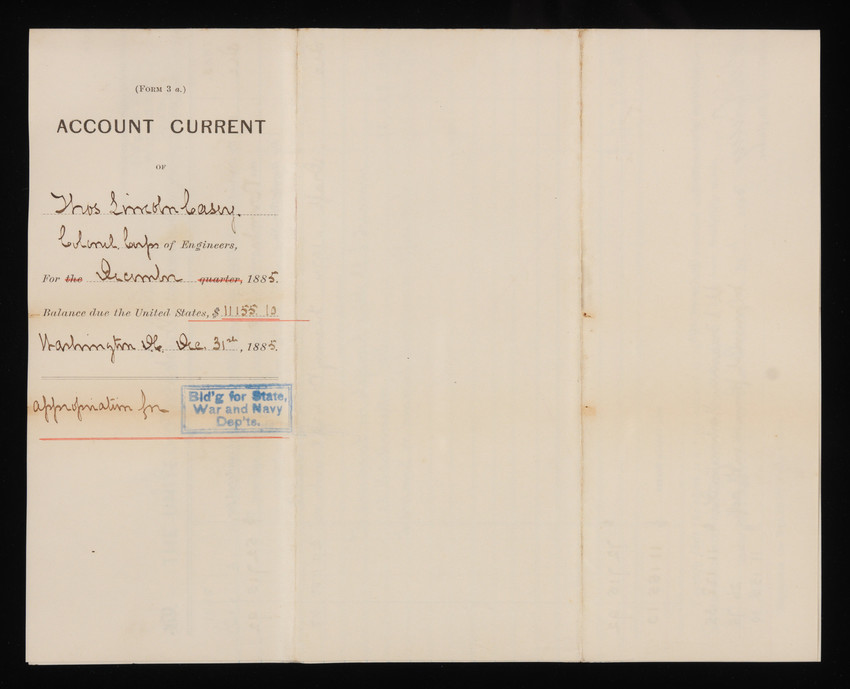 (FORM 3 a.)
ACCOUNT CURRENT
OF
Thos Lincoln Casey.
Colonel, Corps of Engineers,
For the December quarter, 1885.
Balance due the United States, $ 11155.12
Washington D.C. Dec. 31st, 1885.
appropriation for
Bld'g for State,
War and Navy
Dep'ts.